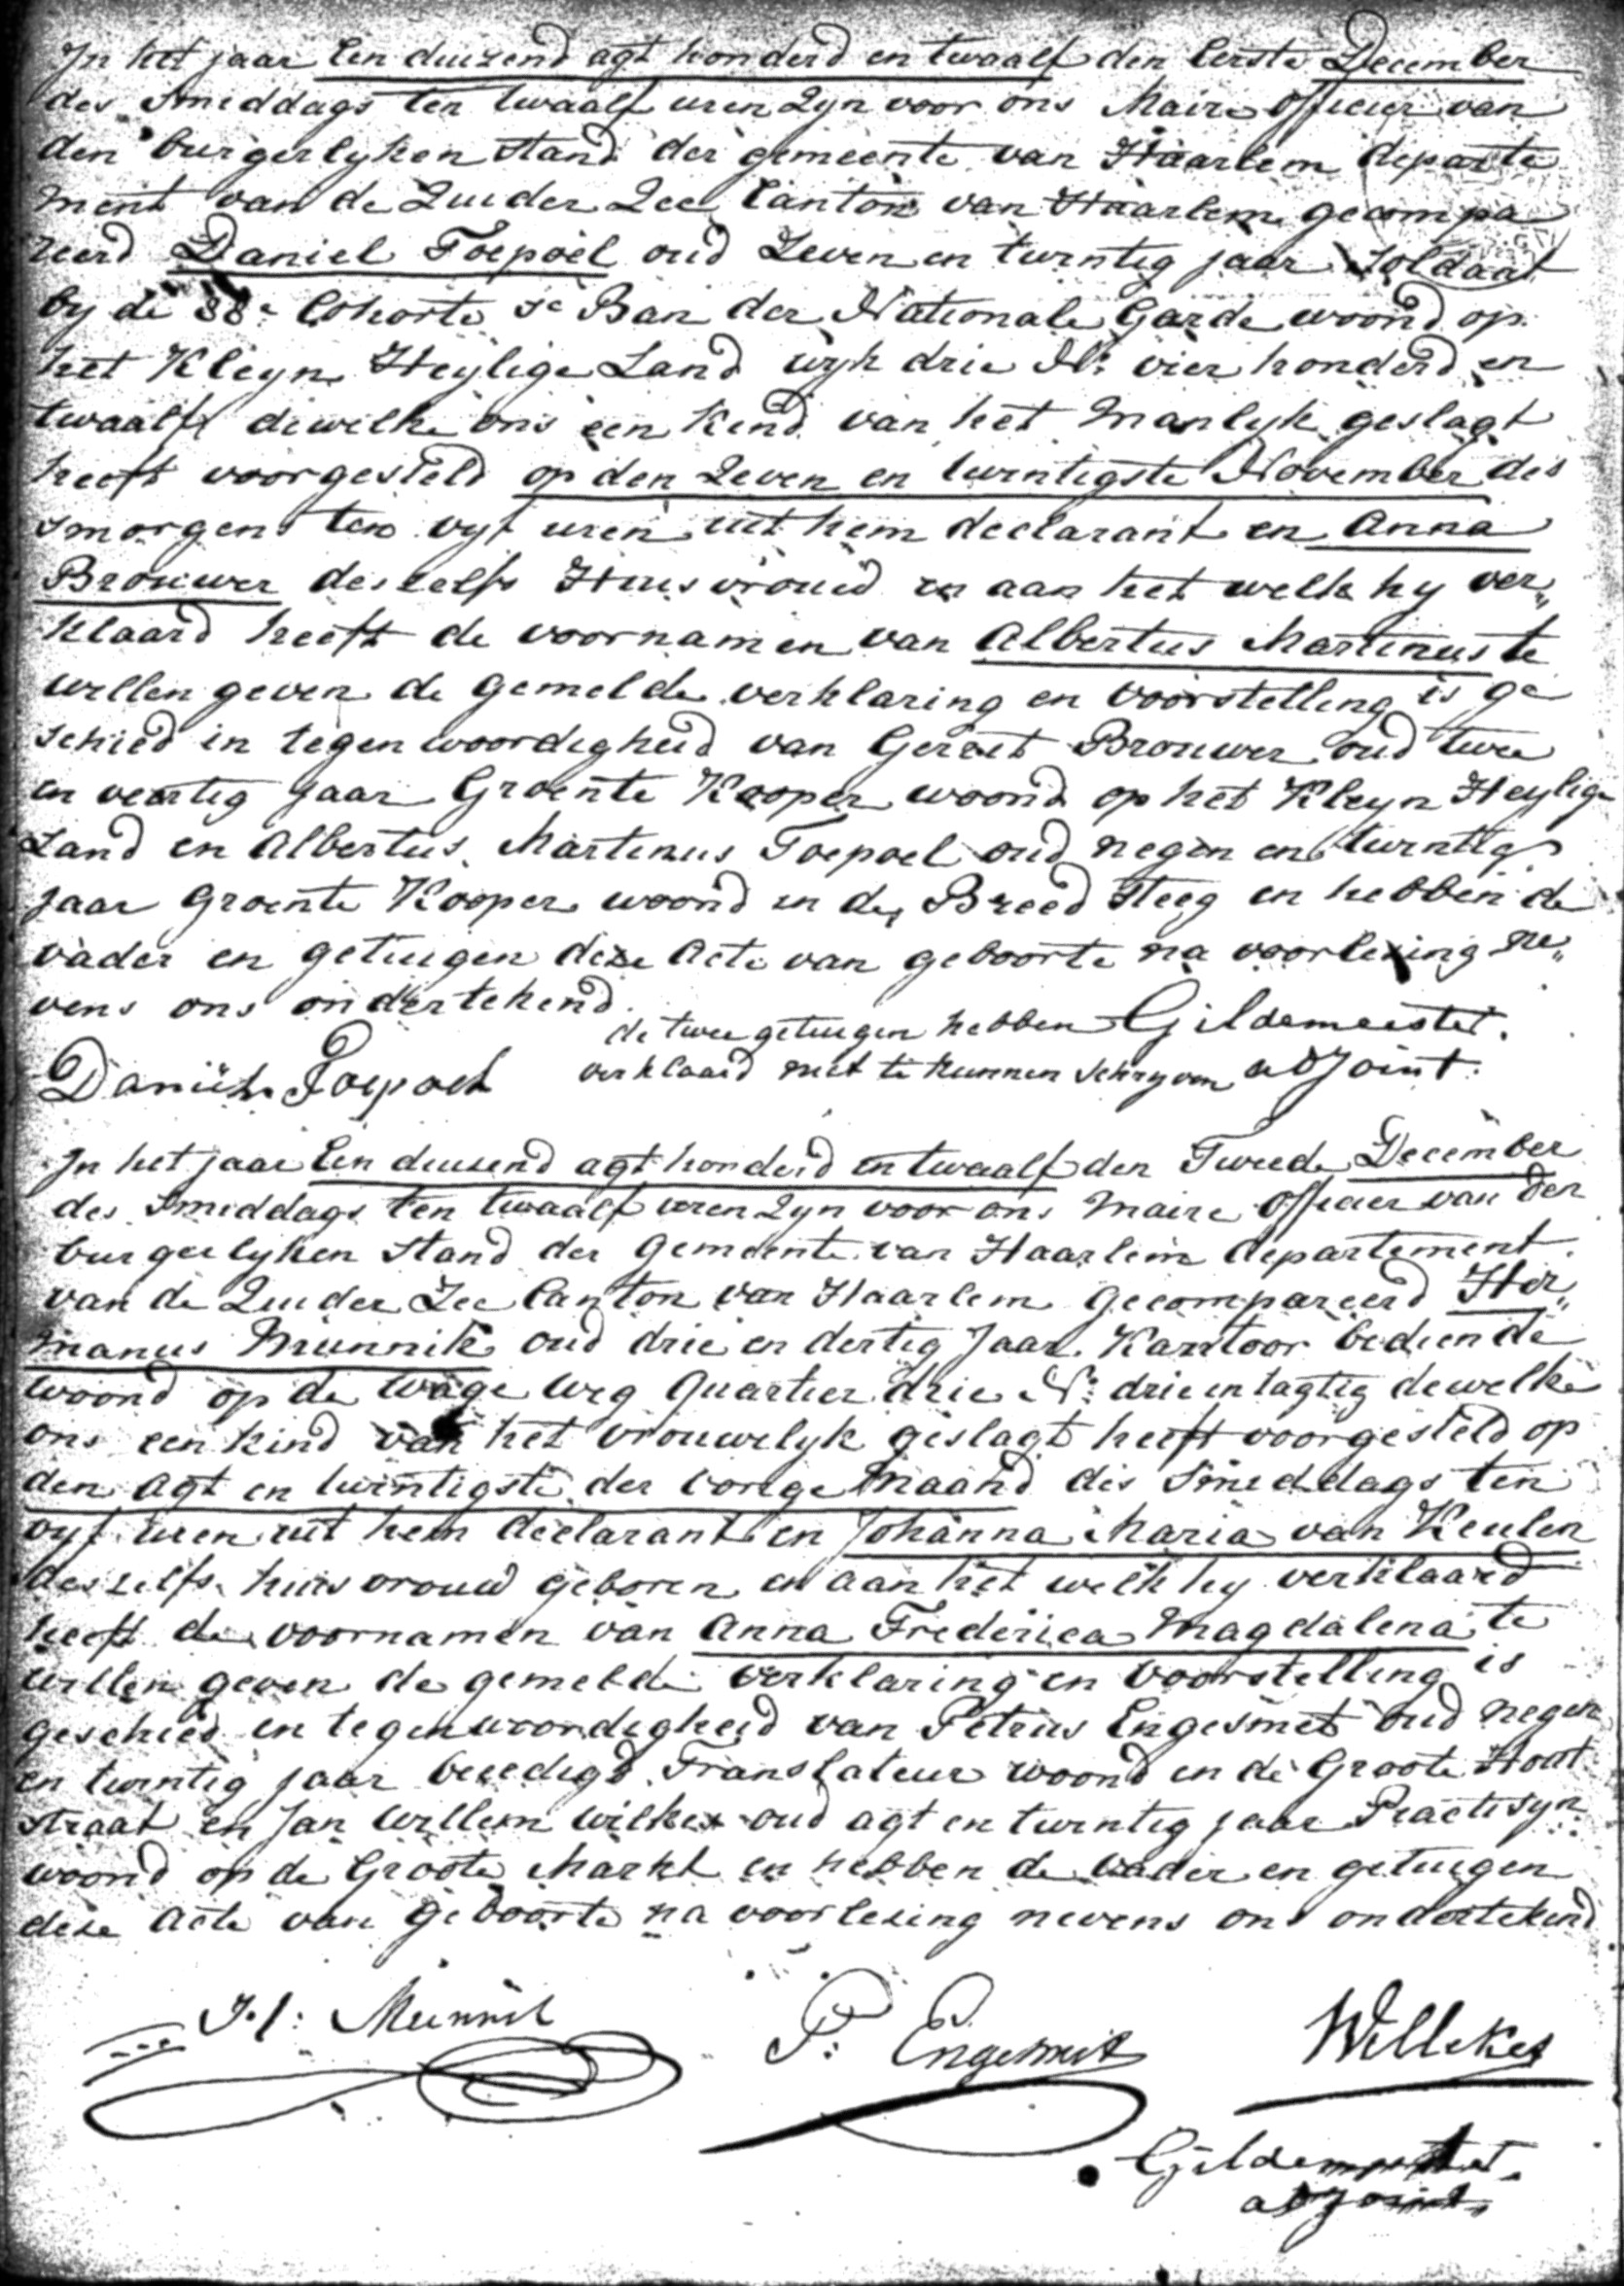 In het jaar Een duizend agt honderd en twaalf den Eerste December
des Smiddags ten twaalf uren Zyn voor ons Maire officier van
den burgerlyken stand der gemeente van Haarlem departe
ment van de Zuider Zee Canton van Haarlem gecompa
reerd Daniel Toepoel oud Zeven en twintig jaar Soldaat
by de 88e Cohorte 1e Ban der Nationale Garde woond op
het Kleyn Heylige Land wyk drie No: vier honderd en
twaalf dewelke ons een Kend van het Manlyk geslagt
heeft voorgesteld op den Zeven en twintigste November des
smorgens ten vyf uren uit hem declarant en Anna
Brouwer deszelfs Huisvrouw en aan het welk hy ver„
klaard heeft de voornamen van Albertus Martinus te
willen geven de gemelde verklaring en voorstelling is ge
schied in tegenwoordigheid van Gerrit Brouwer oud twee
en veertig jaar Groente Kooper woond op het Kleyn Heylige
Land en Albertus Martinus Toepoel oud negen en twintig
jaar Groente Kooper woond in de Breed Steeg en hebben de
vader en getuigen deze Acte van geboorte na voorlezing ne„
vens ons ondertekend.
de twee getuigen hebben Gildemeester.
Daniël Toepoel verklaard niet te kunnen schryven adjoint.
In het jaar Een duisend agt honderd en twaalf den Tweede December
des Smiddags ten twaalf uren Zyn voor ons Maire officier van den
burgerlyken Stand der Gemeente van Haarlem departement
van de Zuider Zee Canton van Haarlem Gecompareerd Her„
manus Munnik oud drie en dertig Jaar Kantoor bediende
woond op de Wage weg Quartier drie No: drie en tagtig dewelke
ons een kind van het vrouwelyk geslagt heeft voorgesteld op
den agt en twintigste der vorige Maand des Smiddags ten
vyf uren uit hem declarant en Johanna Maria van Keulen
deszelfs huisvrouw geboren en aan het welk hy verklaard
heeft de voornamen van Anna Frederica Magdalena te
willen geven de gemelde verklaring en voorstelling is
geschied in tegenwoordigheid van Petrus Engesmet oud negen
en twintig jaar beeedigd Translateur woond in de Groote Hout
straat en Jan Willem Wilkes oud agt en twintig jaar Practisyn
woond op de Groote Markt en hebben de vader en getuigen
deze Acte van geboorte na voorlesing nevens ons ondertekend
H: Munnik P: Engesmet Willekes
Gildemeester.
adjoint.